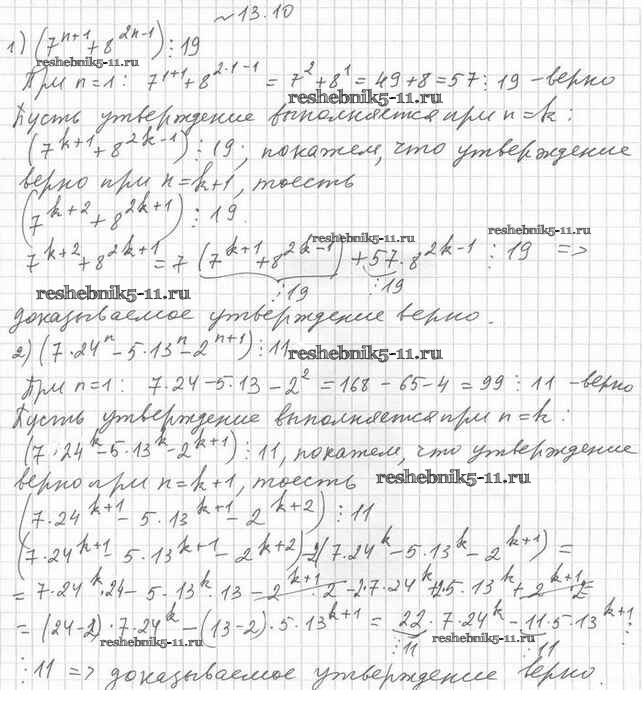 №13.10
1) (7^{n+1} + 8^{2n-1}) ⋮ 19
reshebnik5-11.ru
При n=1: 7^{1+1} + 8^{2·1-1} = 7^2 + 8^1 = 49 + 8 = 57 ⋮ 19 – верно
reshebnik5-11.ru
Пусть утверждение выполняется при n=k:
(7^{k+1} + 8^{2k-1}) ⋮ 19; покажем, что утверждение
верно при n=k+1, тоесть
(7^{k+2} + 8^{2k+1}) ⋮ 19.
reshebnik5-11.ru
reshebnik5-11.ru
7^{k+2} + 8^{2k+1} = 7 (7^{k+1} + 8^{2k-1}) + 57·8^{2k-1} ⋮ 19 =>
reshebnik5-11.ru
⋮19 ⋮19
доказываемое утверждение верно.
2) (7·24^n - 5·13^n - 2^{n+1}) ⋮ 11
reshebnik5-11.ru
При n=1: 7·24 - 5·13 - 2^2 = 168 - 65 - 4 = 99 ⋮ 11 – верно
Пусть утверждение выполняется при n=k:
(7·24^k - 5·13^k - 2^{k+1}) ⋮ 11, покажем, что утверждение
верно при n=k+1, тоесть
reshebnik5-11.ru
(7·24^{k+1} - 5·13^{k+1} - 2^{k+2}) ⋮ 11
(7·24^{k+1} - 5·13^{k+1} - 2^{k+2}) - 2(7·24^k - 5·13^k - 2^{k+1}) =
= 7·24^k·24 - 5·13^k·13 - 2^{k+1}·2 - 2·7·24^k + 2·5·13^k + 2^{k+1}·2
= (24-2)·7·24^k - (13-2)·5·13^{k+1} = 22·7·24^k - 11·5·13^{k+1} ⋮
reshebnik5-11.ru
reshebnik5-11.ru
⋮11 ⋮11
⋮ 11 => доказываемое утверждение верно.